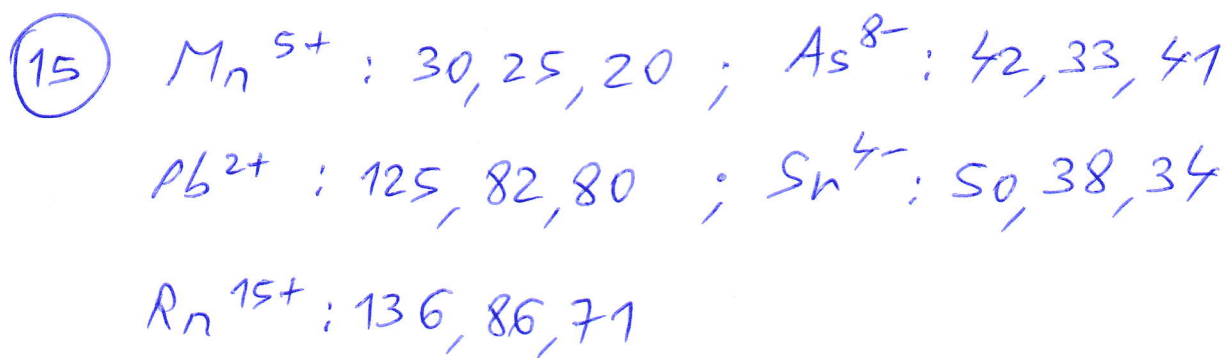 15 Mn⁵⁺ : 30, 25, 20 ; As⁸⁻ : 42, 33, 41
Pb²⁺ : 125, 82, 80 ; Sr⁴⁻ : 50, 38, 34
Rn¹⁵⁺ : 136, 86, 71